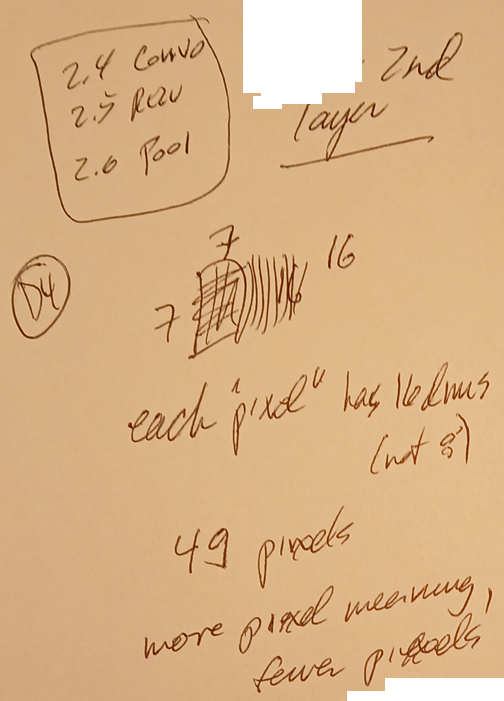 2.4 Convo
2.5 Relu
2.6 Pool
2nd
layer
D4
7
7
16
each "pixel" has 16 dims
(not 8)
49 pixels
more pixel meaning,
fewer pixels